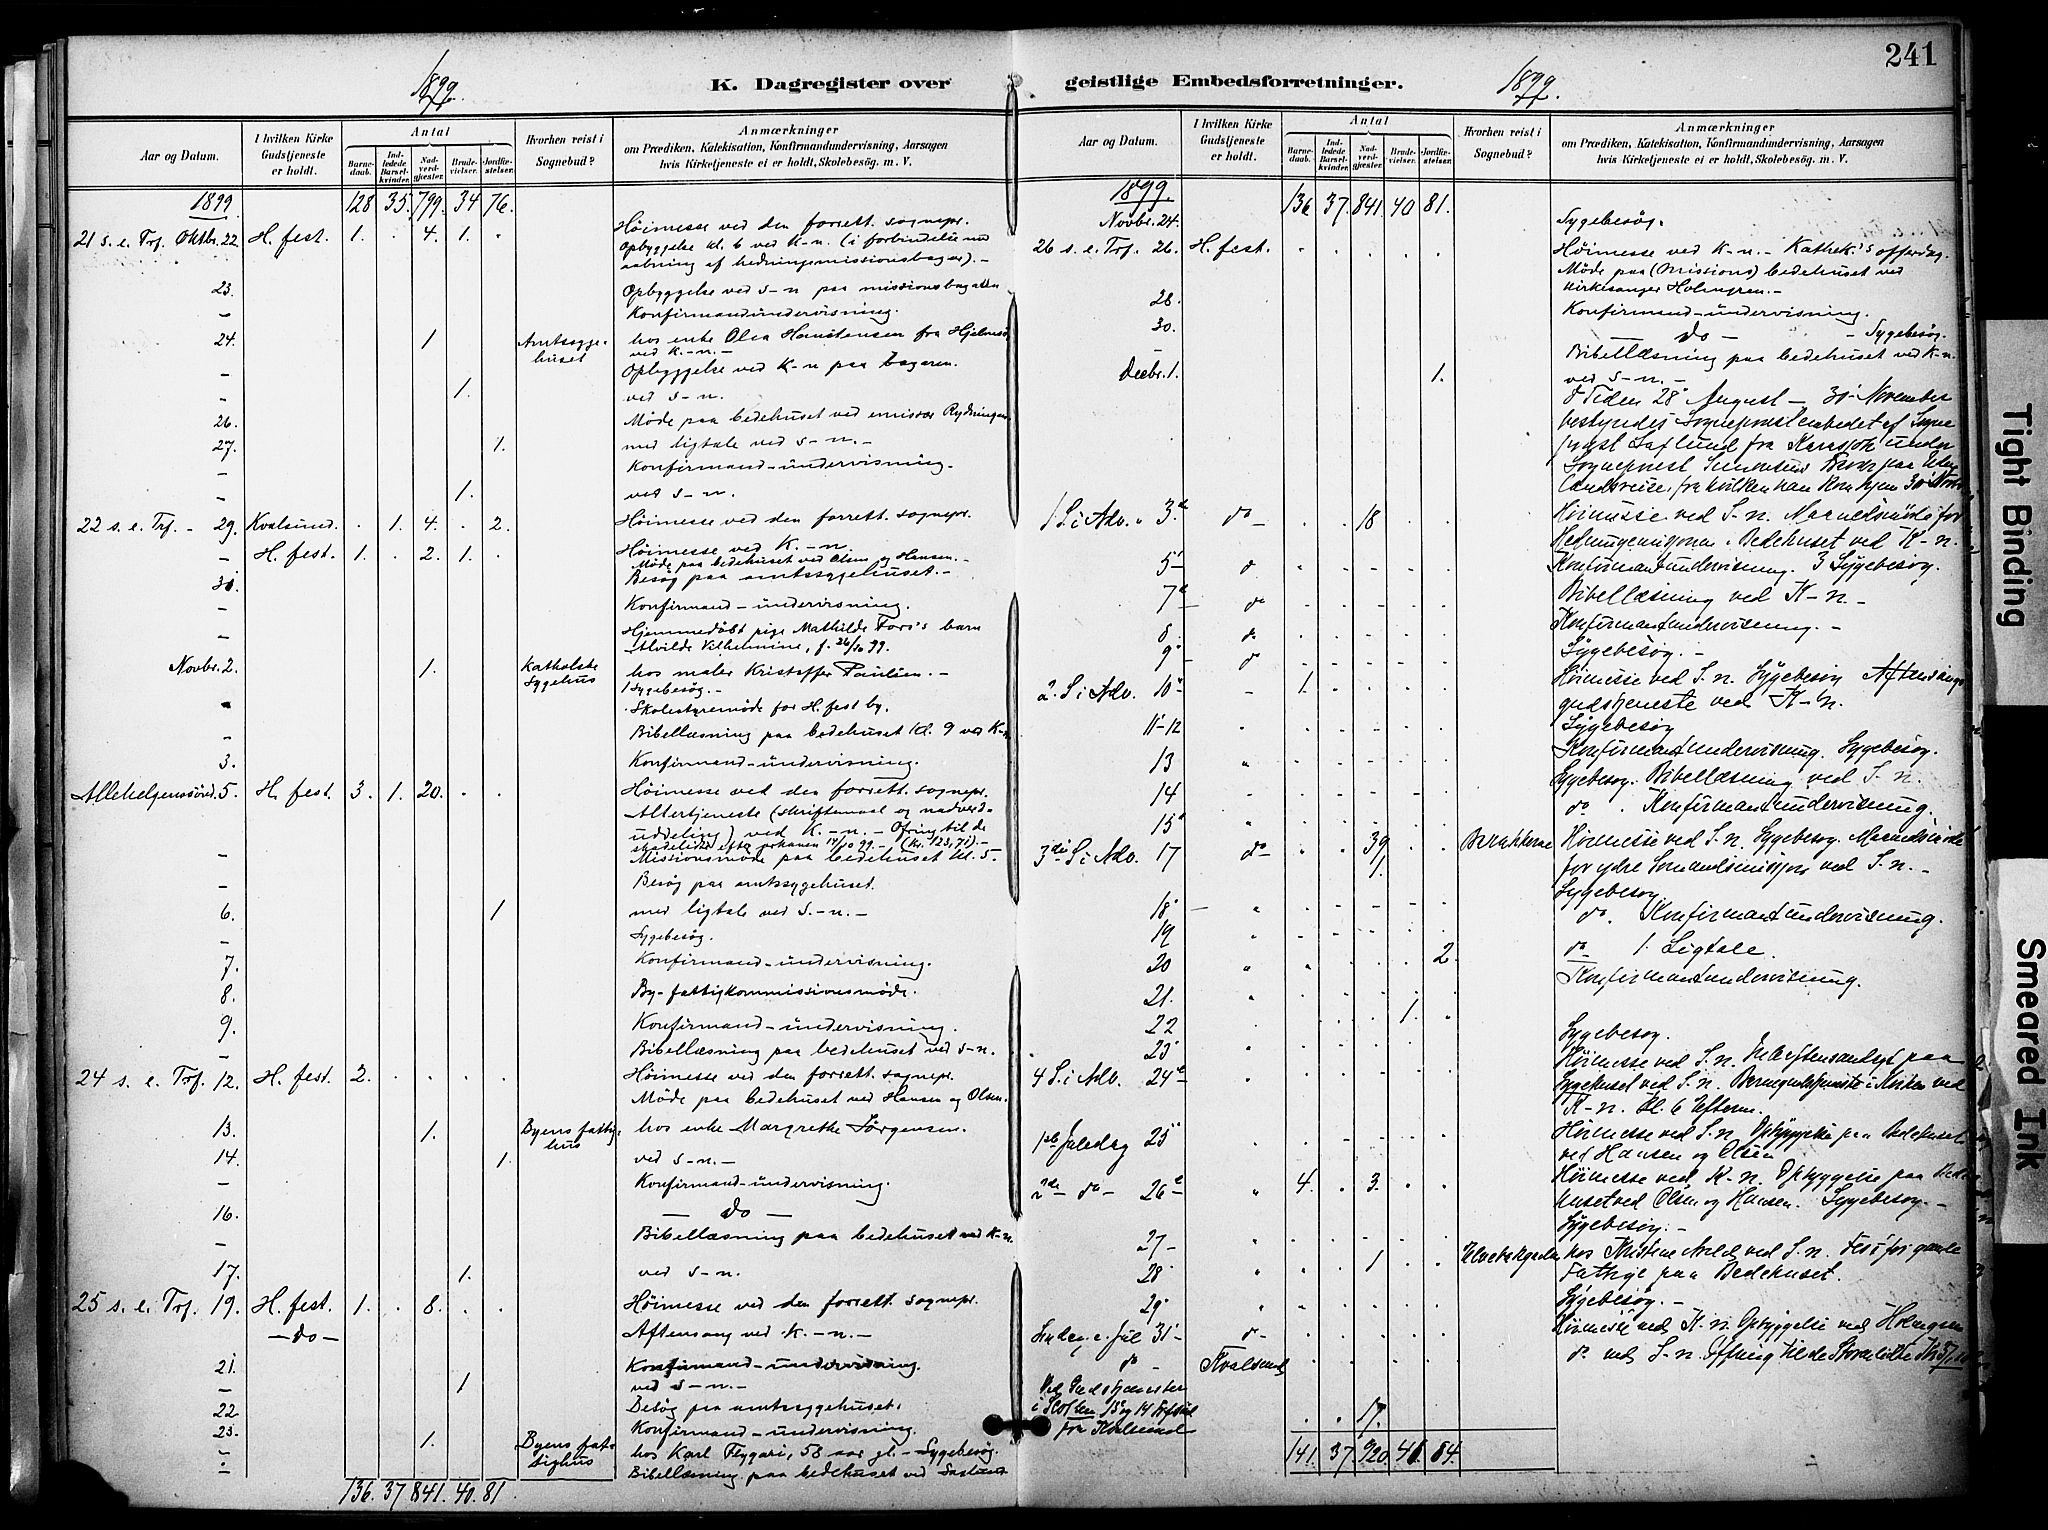 1899.
K. Dagregister over
Aar og Datum.
I hvilken Kirke Gudstjeneste er holdt.
Antal
Barnedaab.
Indledede Barselkvinder.
Nadverdgjæster.
Brudevielser.
Jordfæstelser.
Hvorhen reist i Sognebud?
Anmærkninger
om Prædiken, Katekisation, Konfirmandundervisning, Aarsagen
hvis Kirketjeneste ei er holdt, Skolebesøg. m. V.
1899 128 35. 799. 34 76.
21 s. e. Trf. Oktbr. 22. H. fest. 1. . 4. 1. . Høimesse ved den forrett. sognepr.
Opbyggelse kl. 6 ved K-n. (i forbindelse med
aabning af hedningemissionsbazar). -
23. Opbyggelse ved S-n paa missionsbazaren
- Konfirmandundervisning.
24. 1 Amtssyge-
huset hos enke Olea Hansteensen fra Hjelmsø
ved K.-n. -
- Opbyggelse ved K-n paa bazaren.
- 1. ved S-n.
26. Møde paa bedehuset ved emissær Rydningen
27. 1. med ligtale ved S-n. -
- Konfirmand-undervisning.
- 1. ved S-n.
22 s. e. Trf. - 29. Kvalsund. . 1. 4. . 2. Høimesse ved den forrett. sognepr.
- H. fest. 1. . 2. 1. Høimesse ved K.-n.
Møde paa bedehuset ved Olsen og Hansen. -
30. Besøg paa amtssygehuset. -
- Konfirmand-undervisning.
- Hjemmedøbt pige Mathilde Fors's barn
Alvilde Vilhelmine, f. 26/10 99.
Novbr. 2. 1. Katholske
Sygehus hos maler Kristoffer Paulsen. -
1 Sygebesøg. -
Skolestyremøde for H. fest by.
- Bibellæsning paa bedehuset kl. 9 ved K-n
3. Konfirmand-undervisning.
Allehelgenssønd. 5. H. fest. 3. 1. 20. . . Høimesse ved den forrett. sognepr.
Altertjeneste (skriftemaal og nadverd-
uddeling) ved K.-n. - Ofring til de
skadelidte efter orkanen 14/10 99. - (Kr. 123,71). -
- Missionsmøde paa bedehuset kl. 5.
- Besøg paa amtssygehuset.
6. 1 med ligtale ved S.-n. -
- Sygebesøg.
7. Konfirmand-undervisning.
8. By-fattigkommissionsmøde.
9. Konfirmand-undervisning.
- Bibellæsning paa bedehuset ved S-n.
24 s. e. Trf. 12. H. fest. 2. . . . . Høimesse ved den forrett. sognepr.
Møde paa bedehuset ved Hansen og Olsen.
13. 1. Byens fattig-
hus hos enke Margrethe Jørgensen.
14. 1. ved S-n. -
- Konfirmand-undervisning.
16. - do -
- Bibellæsning paa bedehuset ved K-n.
17. 1. ved S-n.
25 s. e. Trf. 19. H. fest. 1. . 8. . . Høimesse ved den forrett. sognepr.
- do - Aftensang ved K.-n. -
21. Konfirmand-undervisning.
- 1 ved S-n. -
22 Besøg paa amtssygehuset.
23. Konfirmand-undervisning.
- 1. Byens fat-
tighus hos Karl Flygari, 58 aar gl. - Sygebesøg.
- Bibellæsning paa bedehuset ved
136. 37 841. 40. 81
241
geistlige Embedsforretninger.
1899.
Aar og Datum.
I hvilken Kirke Gudstjeneste er holdt.
Antal
Barnedaab.
Indledede Barselkvinder.
Nadverdgjæster.
Brudevielser.
Jordfæstelser.
Hvorhen reist i Sognebud?
Anmærkninger
om Prædiken, Katekisation, Konfirmandundervisning, Aarsagen
hvis Kirketjeneste ei er holdt, Skolebesøg. m. V.
1899. 136 37. 841 40 81.
Novbr. 24. Sygebesøg.
26 s. e. Trf. 26. H. fest. . . . . . Høimesse ved K-n. - Kathek.'s offerdag.
Møde paa (Missions) bedehuset ved
kirkesanger Holmgren. -
28. Konfirmand-undervisning.
30. - do - - Sygebesøg.
- Bibellæsning paa bedehuset ved K-n.
Decbr. 1. 1. ved S-n. -
I Tiden 28 August - 30 November
bestyredes Sognepræstembedet af Sogne
præst Saflund fra Karasjok under
Sognepræst Simonsens Reise paa Uden
landsreise, fra hvilken han kom hjem 30 Novbr
1 S. i Adv. 3. do - . . 18 . . Høimesse ved S. n. Maanedsmøde for
Hedningemisjonen i Bedehuset ved K-n.
5 - do Konfirmantundervisning. 3 Sygebesøg.
7 - do Bibellæsning ved K-n. -
8. do Konfirmantundervisning. -
9 - do Sygebesøg. -
2. S. i Adv. 10 - - 1. . . . . Høimesse ved S. n. Sygebesøg Aftensangs
gudstjeneste ved K-n.
11-12 Sygebesøg
13 Konfirmantundervisning. Sygebesøg.
14 Sygebesøg. Bibellæsning ved S. n.
15 do. Konfirmantundervisning.
3die S. i Adv. 17 do - . . 39 . . Barakkerne Høimesse ved S. n. Sygebesøg. Maanedsmøde
1. for ydre Sømandsmissjon ved S. n. -
Sygebesøg
18 - do. Konfirmantundervisning.
19
20 2. do 1. Ligtale.
21. Konfirmantundervisning.
22 1.
23 Sygebesøg.
4 S. i Adv. 24 - Høimesse ved S. n. paa
Sygehuset ved S. n. Børnegudstjeneste i Kirken ved
K-n. Kl. 6 Efterm.
1ste Juledag 25 Høimesse ved S. n. Opbyggelse paa Bedehuset
ved Hansen og Olsen
2de - do - 26 - 4. . 3. . . Høimesse ved K-n. Opbyggelse paa Bede
huset ved Olsen og Hansen. Sygebesøg. -
27 - Sygebesøg. -
28 1 hos Kristine ved S. n. Fest for gamle
Fattige paa Bedehuset.
29 Sygebesøg. -
Søndag e. Jul 31 - do - Høimesse ved K. n. Opbyggelse ved Holmgren
do - Kvalsund do. ved S-n. Offring til de Stormlidte
Ved Gudstjenesten
i Skolken 13 og 14
fra Kvalsund . . 17.
141. 37. 920. 41. 84.
Tight Binding
Smeared Ink